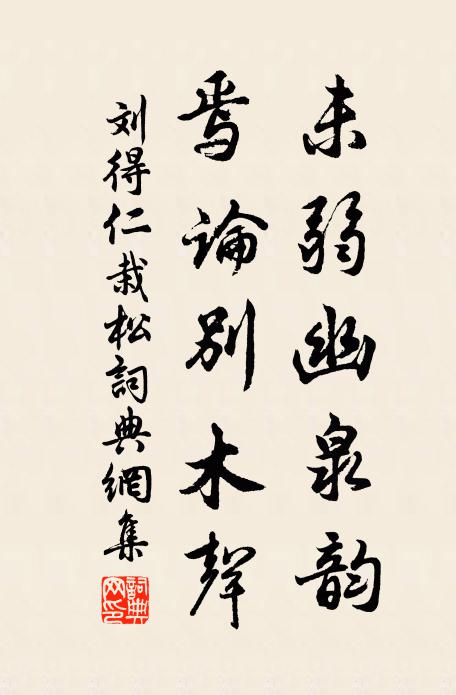 未弱幽泉韵
焉論別木聲
刘得仁栽松詞典網集
詞典网印